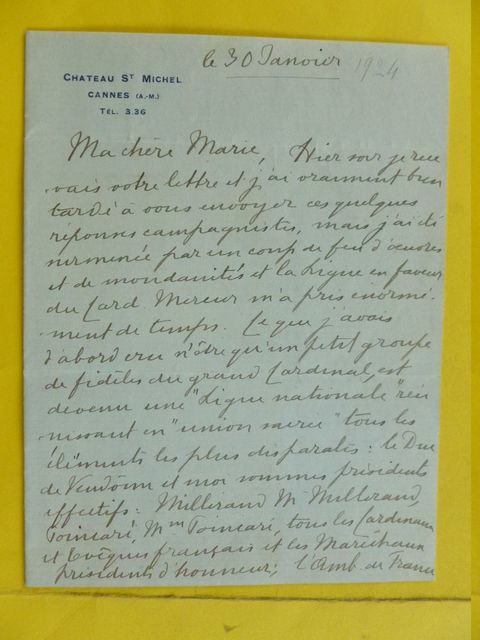 le 30 Janvier 1924
CHATEAU ST MICHEL
CANNES (A.-M.)
TÉL. 3.36
Ma chère Marie, Hier soir je rece
vais votre lettre et j'ai vraiment bien
tardé à vous envoyer ces quelques
réponses campagnistes, mais j'ai été
surmenée par un coup de feu d'œuvres
et de mondanités et la Ligue en faveur
du Card. Mercier m'a pris énormé-
ment de temps. Ce que j'avais
d'abord cru n'être qu'un petit groupe
de fidèles du grand Cardinal, est
devenu une "Ligue nationale" réu
nissant en "union sacrée" tous les
éléments les plus disparates : le Duc
de Vendôme et moi sommes présidents
effectifs. Millerand, Me Millerand,
Poincaré, Mme Poincaré, tous les Cardinaux
et Evêques français et les Maréchaux
présidents d'honneur; l'Amb. de France